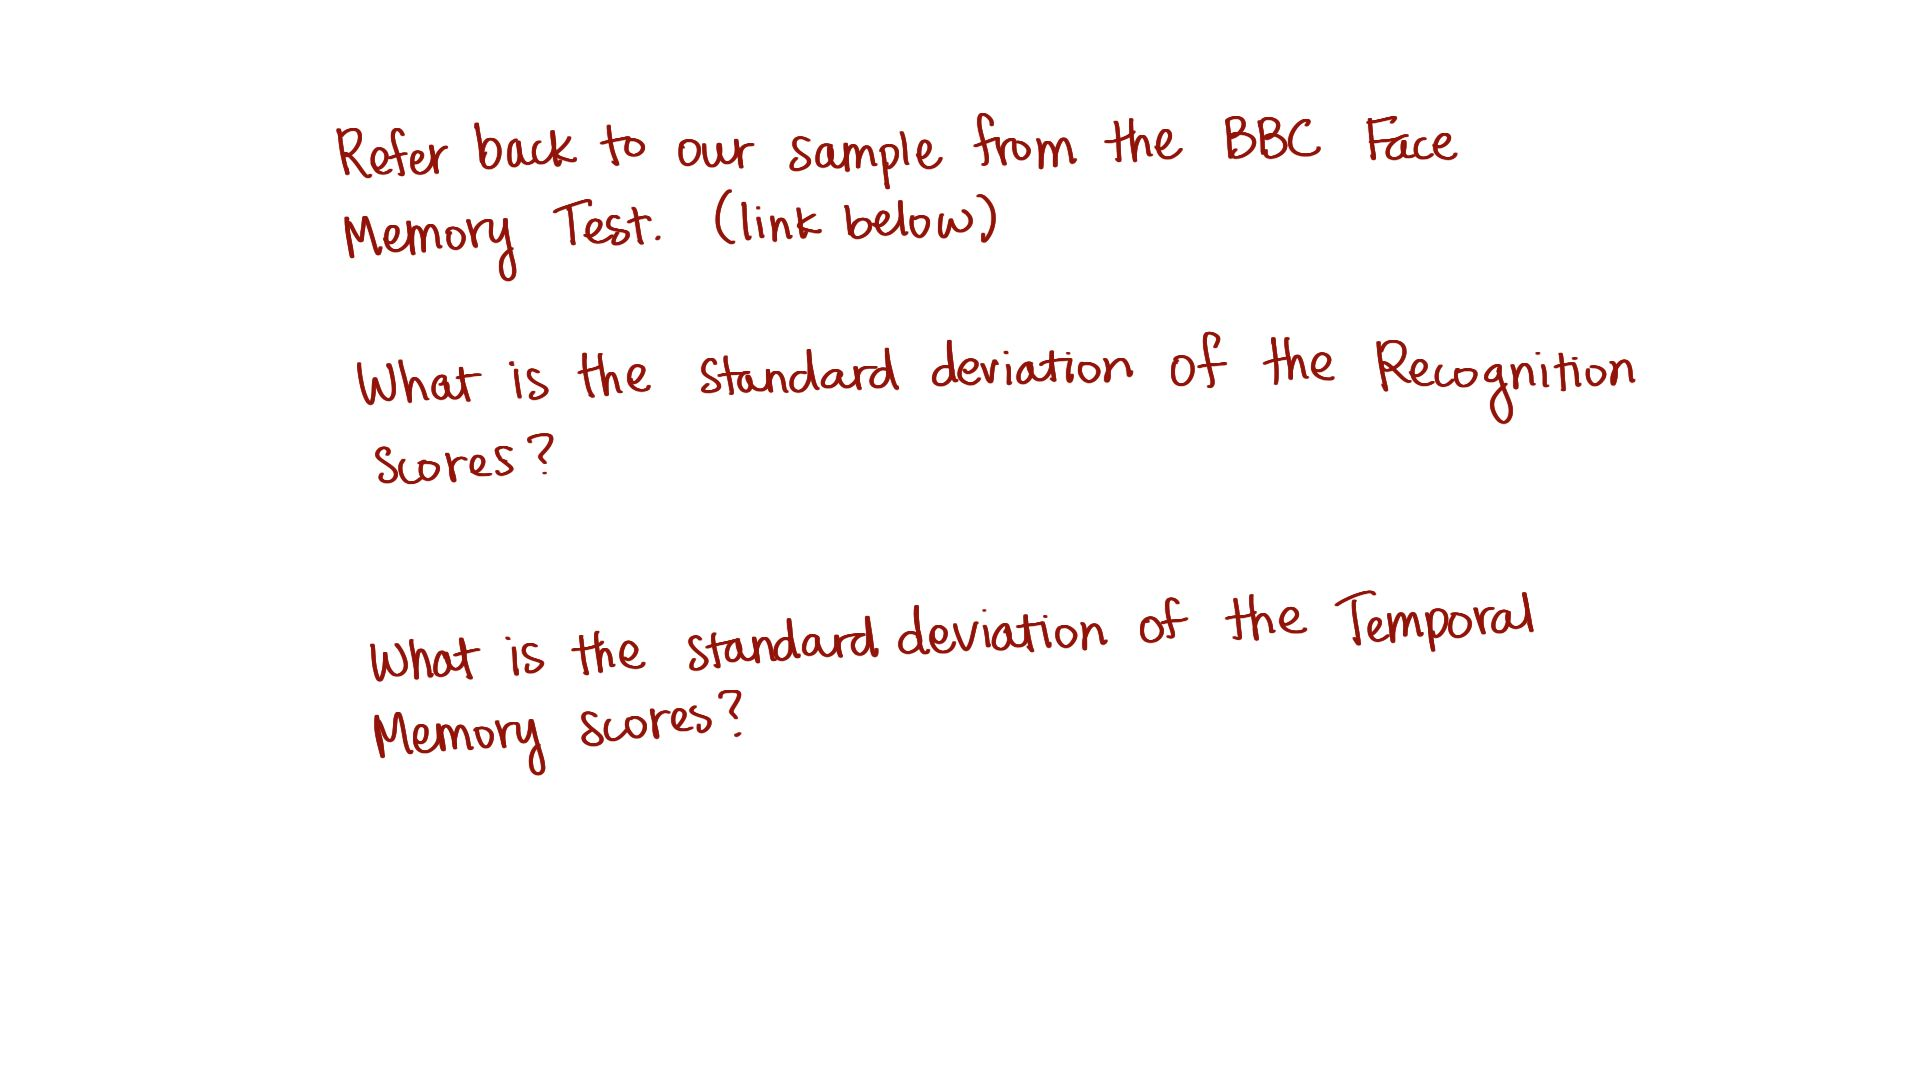 Refer back to our sample from the BBC Face
Memory Test. (link below)
What is the standard deviation of the Recognition
scores?
What is the standard deviation of the Temporal
Memory scores?